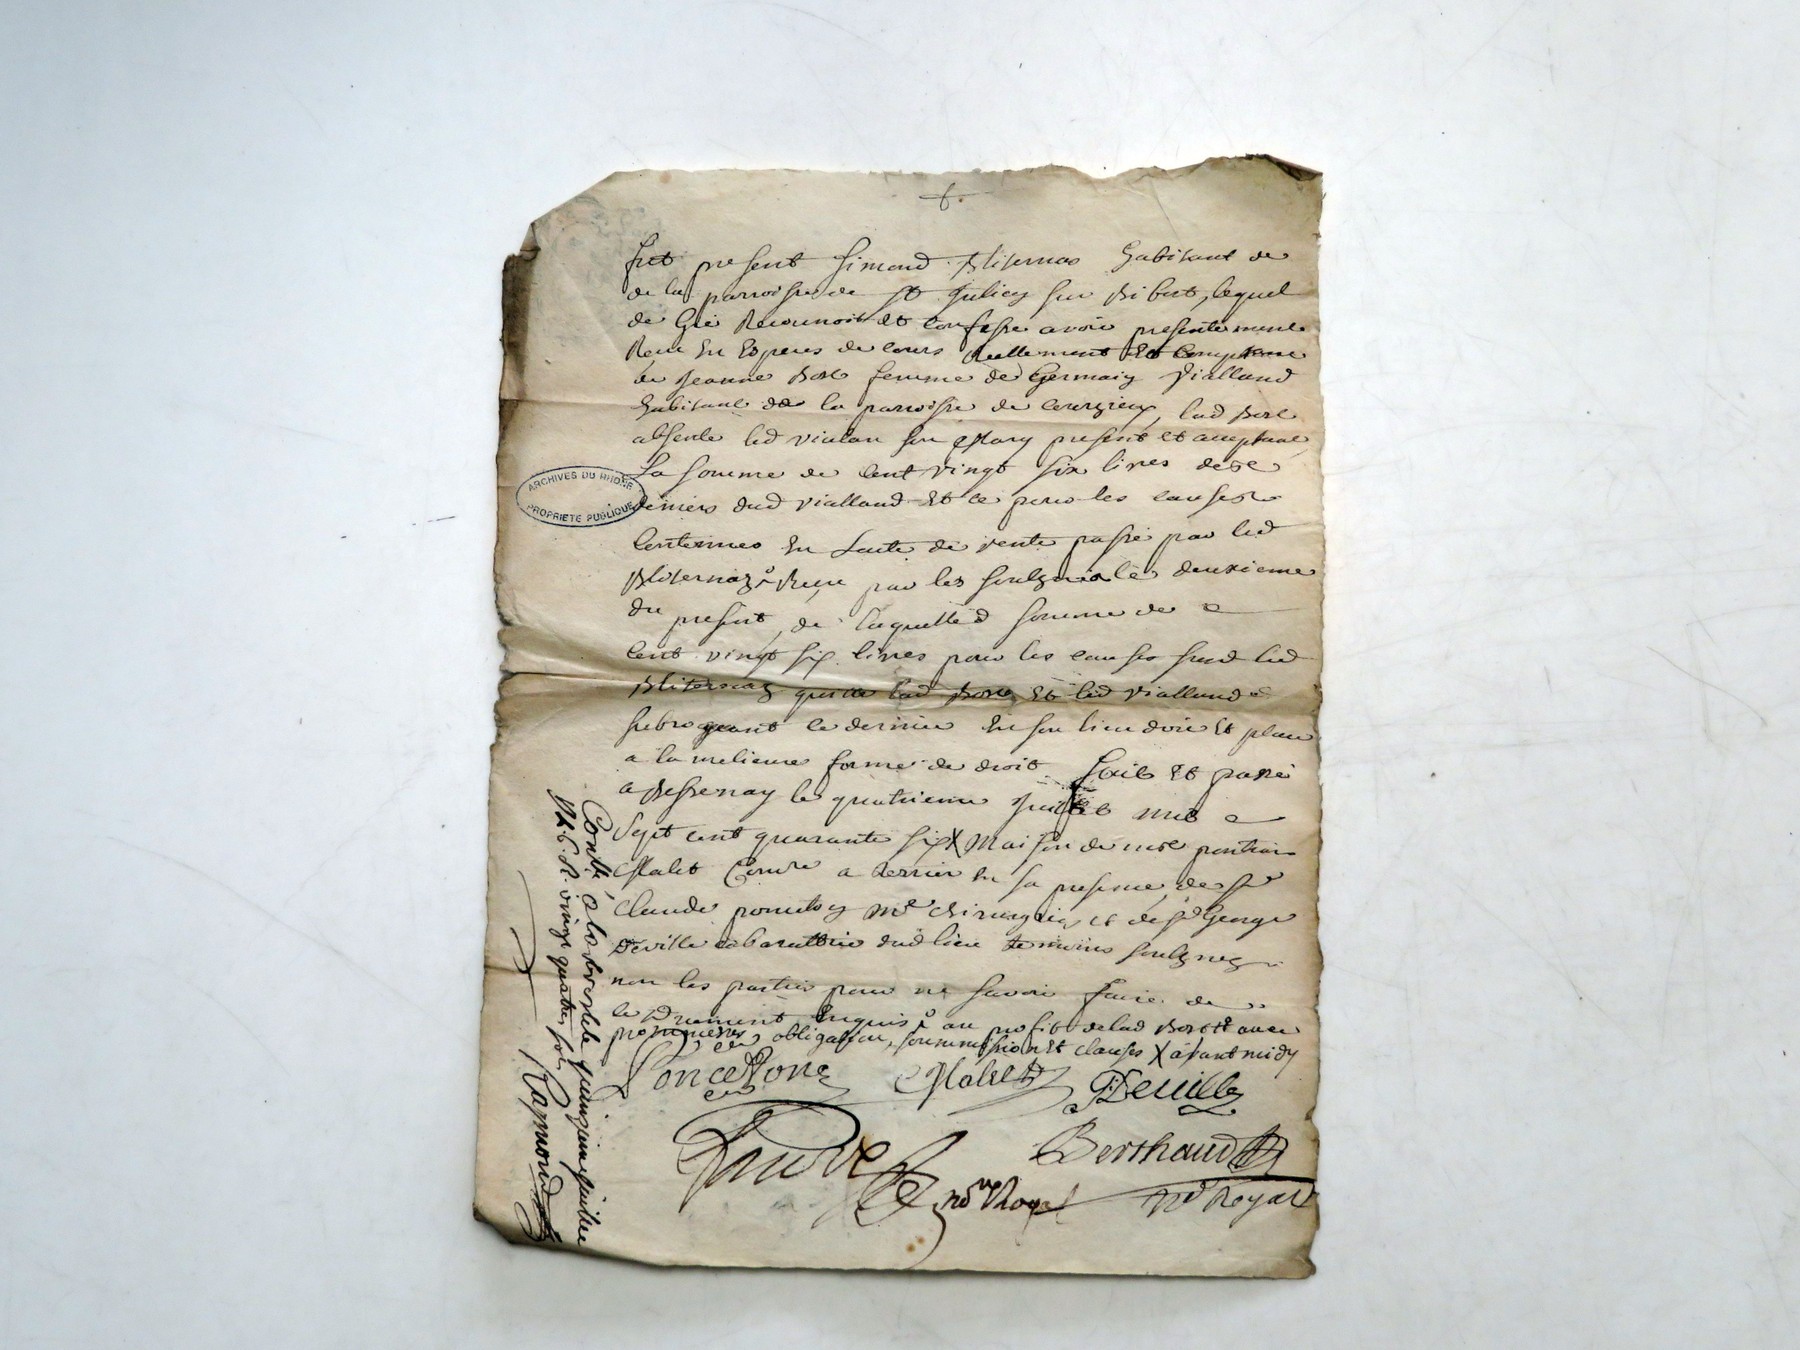 fut present Simond Bliternas habitant de
de la parroisse de St Julien sur Bibost, lequel
de gré Reconnoit et confesse avoir presentement
Receu En Especes de cours Reellement Et comptant
de Jeanne Bost femme de Germain Vialland
habitant de la parroisse de courzieux, lad Bost
absente led vialan son Mary present et acceptant
La somme de Cent vingt six livres de
deniers dud vialland Et ce pour les causes
Contenues En Lacte de vente passé par led
Bliternaz Receu par les soulz le deuxieme
du present, de laquelle d somme de
Cent vingt six livres pour les causes sud led
Bliternaz quitte lad Bost Et led Vialland
subrogeant ce dernier En son lieu droit Et place
a la melieure forme de droit fait Et passé
a Bessenay le quatrieme Juillet mil
Sept cent quarante six X Maison de
Malet a terrier En sa presence, de Sr
Claude poncelon Me chirurgien et de Sr George
Deville cabarettier dud lieu temoins soulznez
non les parties pour ne savoir faire de
ce Duement Enquis au profit de lad Bost avec
promesses, obligation, soummission Et clauses X avant midy
Poncelon
Malet
Deville
Berthaud
nore Royal
nre Royal
Contlé a la bresle le quinzieme juillet
1746. R. vingt quatre sols
Raymond
ARCHIVES DU RHÔNE
PROPRIETE PUBLIQUE